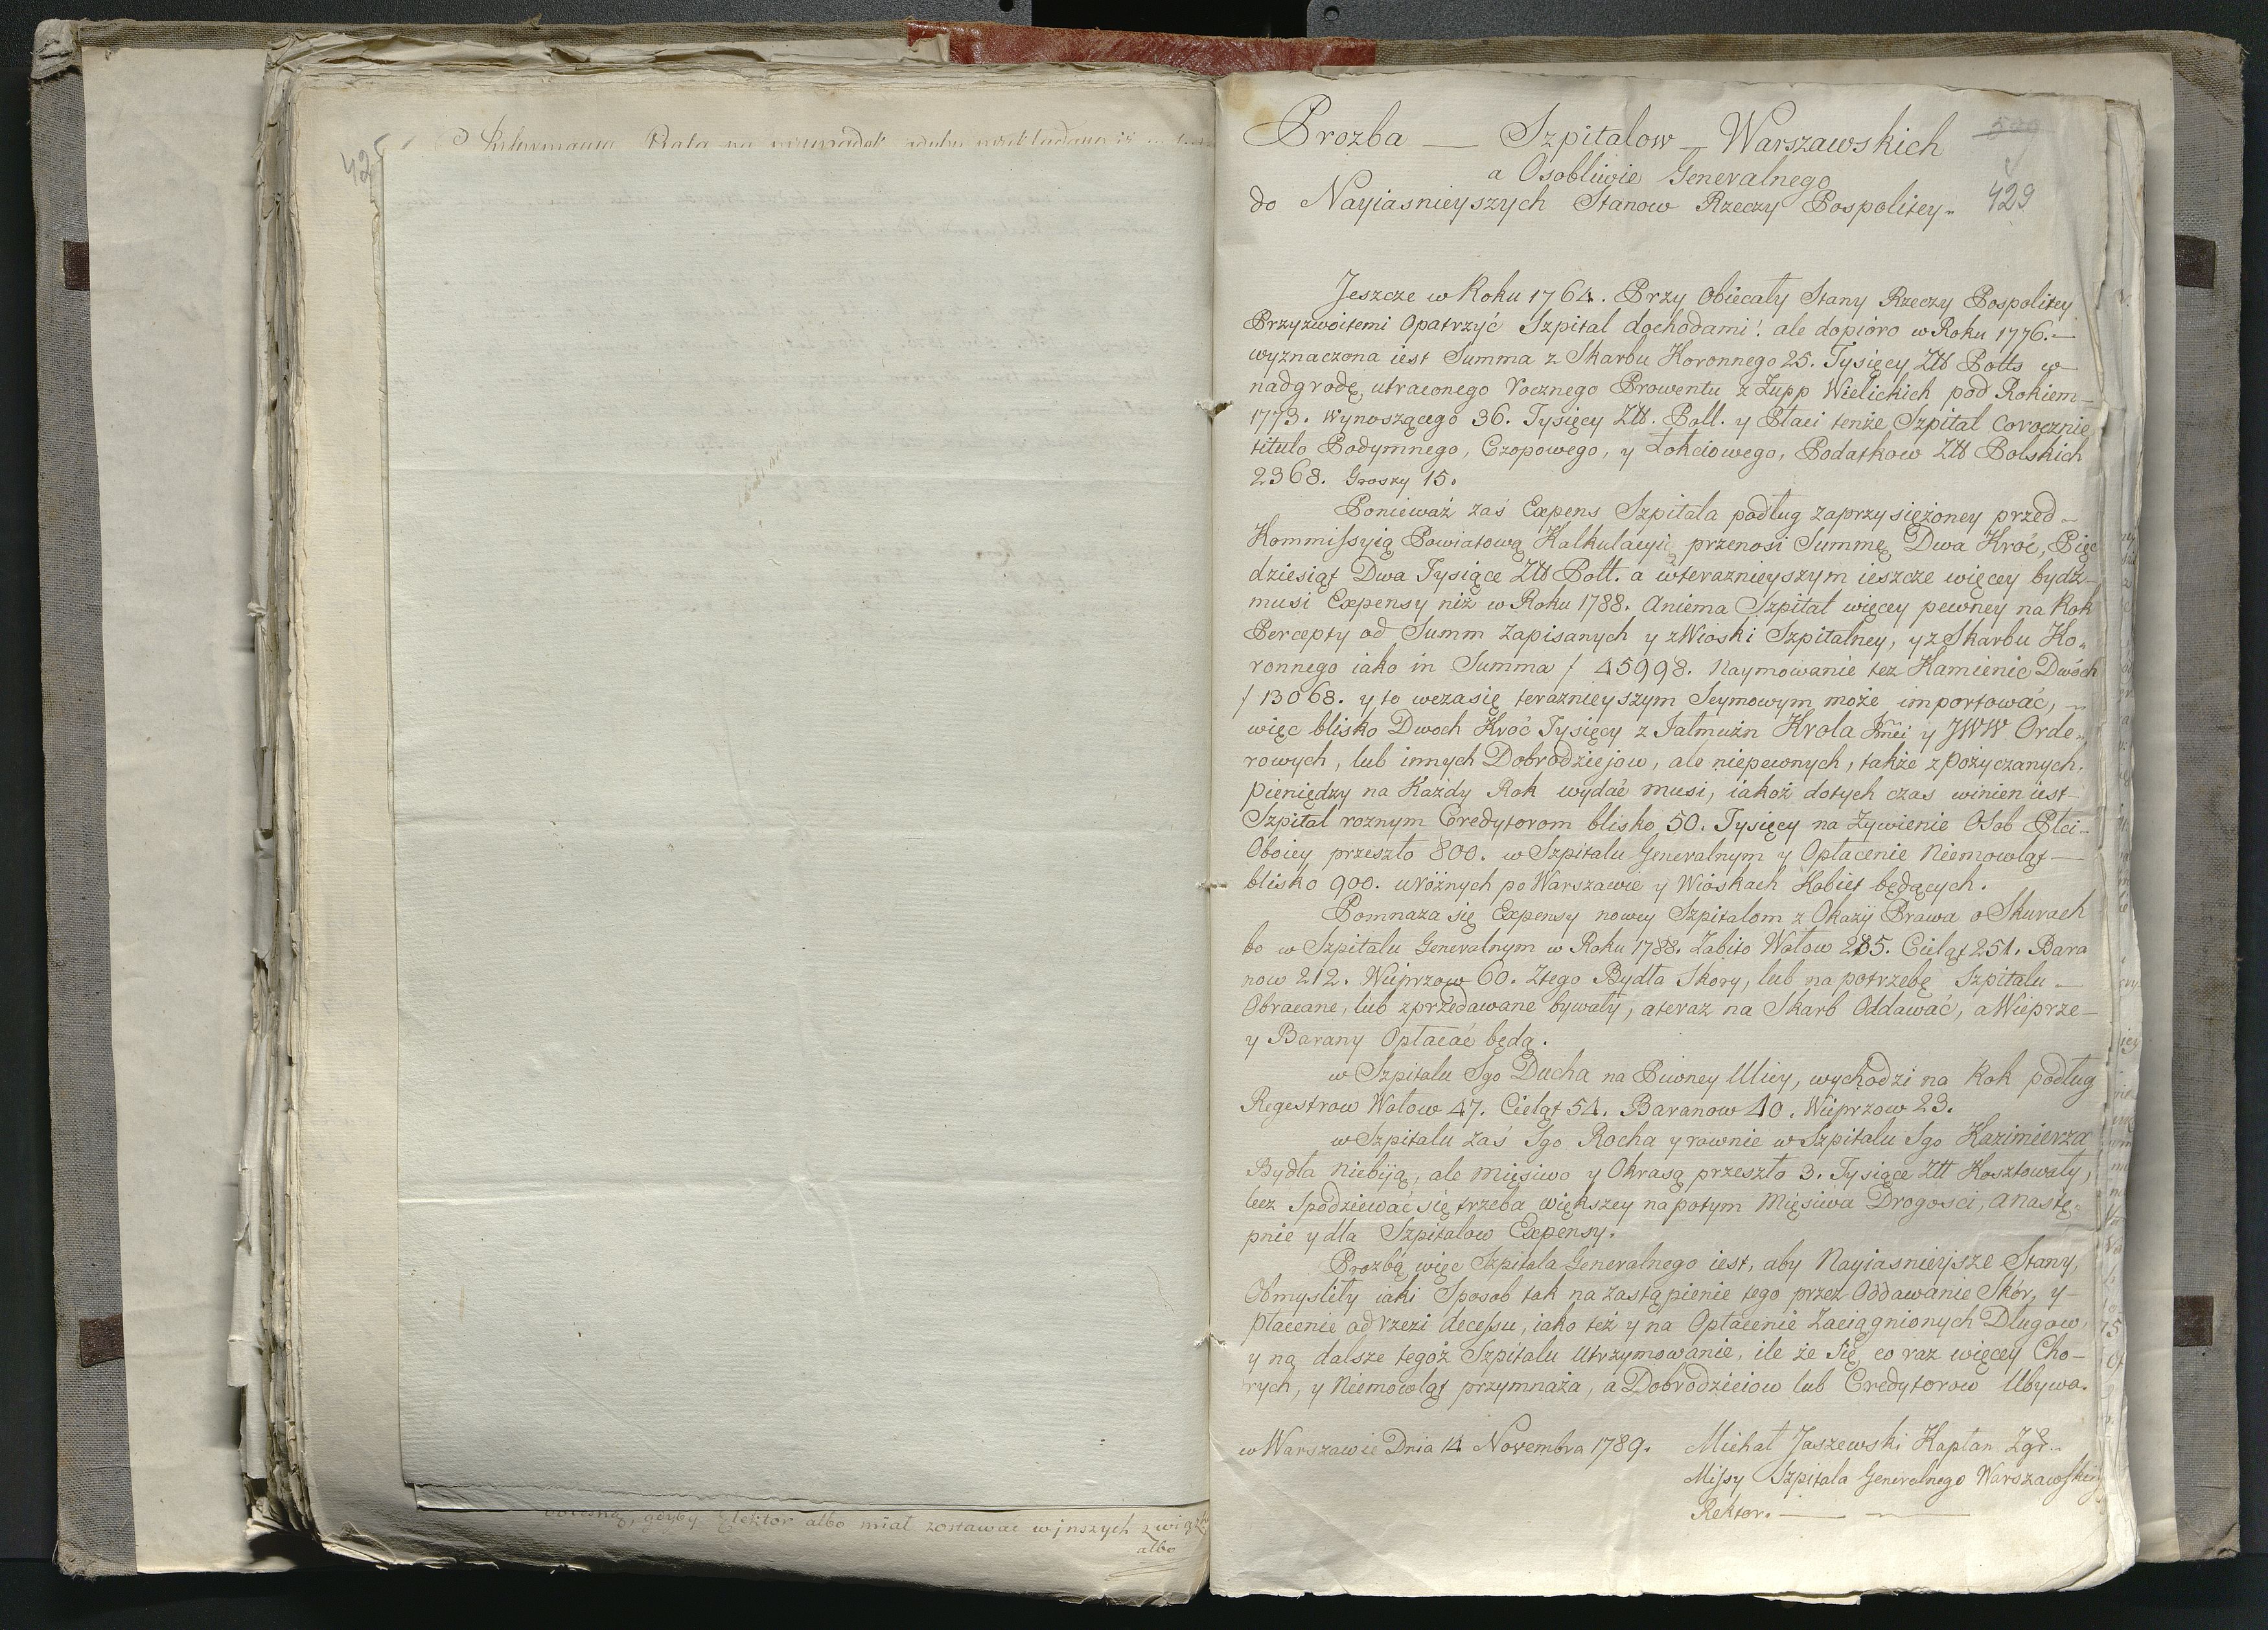 Prozba — Szpitalow — Warszawskich
a Osobliwie Generalnego
do Nayiasnieyszych Stanow Rzeczy Pospolitey.
429
Jeszcze w Roku 1764. Przy Obiecały Stany Rzeczy Pospolitey
Przyzwoitemi Opatrzyć Szpital dochodami! ale dopióro w Roku 1776.—
wyznaczona iest Summa z Skarbu Koronnego 25. Tysięcy Złł Polls w
nadgrodę utraconego rocznego Prowentu z Zupp Wielickich pod Rokiem—
1773. wynoszącego 36. Tysięcy Złł. Poll. y Płaci tenże Szpital corocznie
titulo Podymnego, Czopowego, y Łokciowego, Podatkow Złł Polskich
2368. Groszy 15.
Ponieważ zaś Expens Szpitala podług zaprzysiężoney przed—
Kommissyią Powiatową Kalkulacyi, przenosi Summę Dwa Kroć, Pięć
dziesiąt Dwa Tysiące Złł Poll. a wteraznieyszym ieszcze więcey bydź—
musi Expensy niż w Roku 1788. aniema Szpital więcey pewney na Rok
Percepty od Summ zapisanych y zWioski Szpitalney, y z Skarbu Ko-
ronnego iako in Summa f 45998. Naymowanie tez Kamienic Dwóch
f 13068. y to wczasię teraznieyszym Seymowym może importować,—
więc blisko Dwoch Kroć Tysięcy z Jałmużn Krola Jmci y JWW Orde-
rowych, lub innych Dobrodziejow, ale niepewnych, także zpożyczanych.
pieniędzy na Każdy Rok wydać musi, iakoż dotych czas winien iest—
Szpital roznym Credytorom blisko 50. Tysięcy na żywienie Osob Płci—
Oboiey przeszło 800. w Szpitalu Generalnym y Opłacenie Niemowląt—
blisko 900. uróżnych po Warszawie y Wioskach Kobiet będących.
Pomnaza się Expensy nowey Szpitalom z Okazyi Prawa o Skurach
bo w Szpitalu Generalnym w Roku 1788. Zabito Wołow 285. Cieląt 251. Bara
now 212. Wieprzow 60. Ztego Bydła Skory, lub na potrzebę Szpitalu—
Obracane, lub zprzedawane bywały, ateraz na Skarb Oddawać, a Wieprze—
y Barany Opłacać będą.
w Szpitalu Sgo Ducha na Piwney Ulicy, wychodzi na Rok podług
Regestrow Wołow 47. Cieląt 54. Baranow 40. Wieprzow 23.
w Szpitalu zaś Sgo Rocha y rownie w Szpitalu Sgo Kazimierza
Bydła niebiją, ale mięsiwo y Okrasą przeszło 3. Tysiące Złł Kosztowały,
lecz Spodziewać się trzeba większey napotym Mięsiwa Drogosci, a nastę-
pnie y dla Szpitalow Expensy.
Prozbą więc Szpitala Generalnego iest, aby Nayiasnieysze Stany,
Obmysliły iaki Sposob tak na zastąpienie tego przez Oddawanie Skór, y—
płacenie od rzezi decessu, iako też y na Opłacenie Zaciągnionych Długow,
y na dalsze tegoż Szpitalu utrzymowanie, ile że się co raz więcey Cho—
rych, y Niemowląt przymnaża, a Dobrodzieiow lub Credytorow Ubywa.
w Warszawie Dnia 14 Novembra 1789. Michał Jaszewski Kapłan Zgr.
Missy Szpitala Generalnego Warszawskiey
Rektor.
gdyby Elektor albo miał zostawać wjnszych
albo